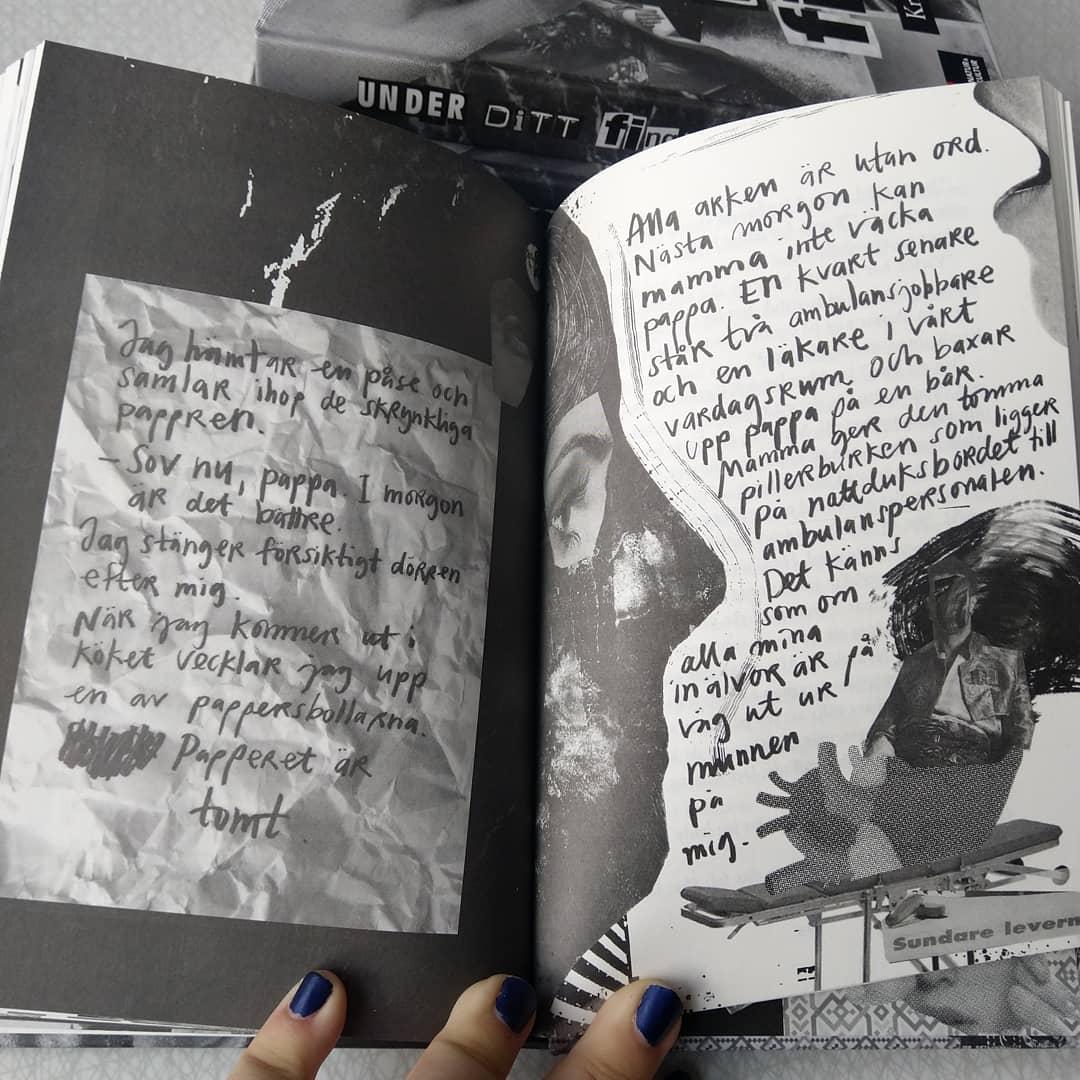 UNDER DiTT fing
NATUR &
KULTUR
Jag hämtar en påse och
samlar ihop de skrynkliga
pappren.
- Sov nu, pappa. I morgon
är det bättre.
Jag stänger försiktigt dörren
efter mig.
När jag kommer ut i
köket vecklar jag upp
en av pappersbollarna.
Papperet är
tomt
Alla arken är utan ord.
Nästa morgon kan
mamma inte väcka
pappa. En kvart senare
står två ambulansjobbare
och en läkare i vårt
vardagsrum och baxar
upp pappa på en bår.
Mamma ger den tomma
pillerburken som ligger
på nattduksbordet till
ambulanspersonalen.
Det känns
som om
alla mina
inälvor är på
väg ut ur
munnen
på
mig.
Sundare levern